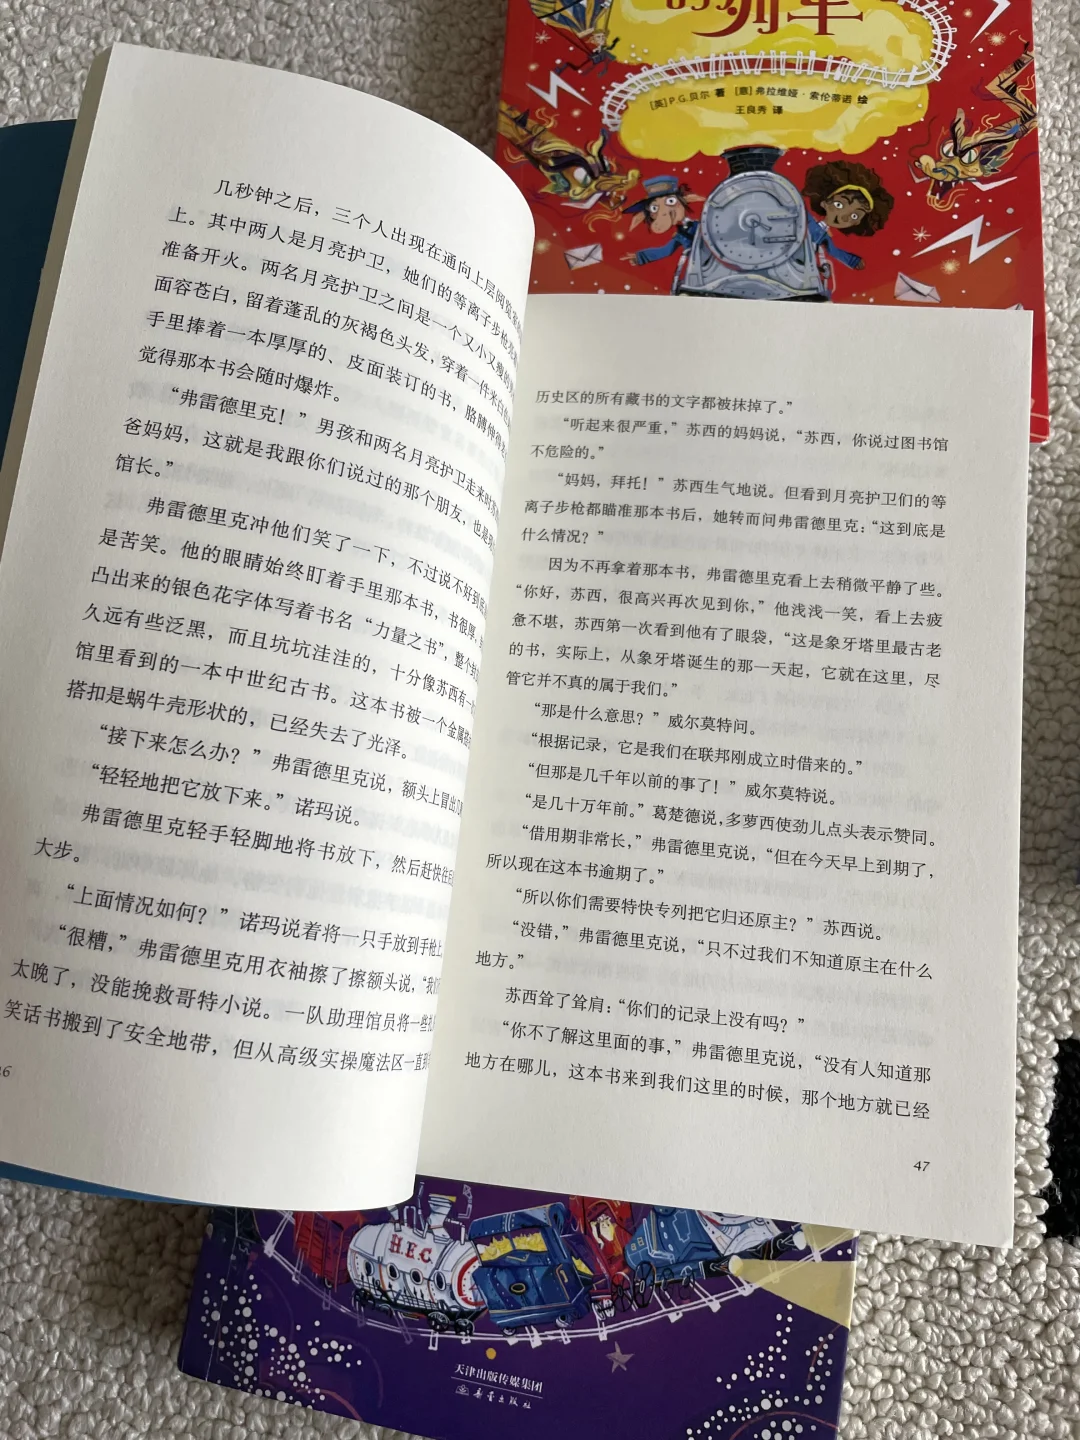 的列车
[英]P.G.贝尔 著 [意]弗拉维娅·索伦蒂诺 绘
王良秀 译
几秒钟之后，三个人出现在通向上层阅览
上。其中两人是月亮护卫，她们的等离子步枪
准备开火。两名月亮护卫之间是一个又小又瘦的
面容苍白，留着蓬乱的灰褐色头发，穿着一件米白色
手里捧着一本厚厚的、皮面装订的书，胳膊伸得
觉得那本书会随时爆炸。
“弗雷德里克！”男孩和两名月亮护卫走来时
爸妈妈，这就是我跟你们说过的那个朋友，也是
馆长。”
弗雷德里克冲他们笑了一下，不过说不好到底
是苦笑。他的眼睛始终盯着手里那本书，书很厚，
凸出来的银色花字体写着书名“力量之书”，整个
久远有些泛黑，而且坑坑洼洼的，十分像苏西有一
馆里看到的一本中世纪古书。这本书被一个金属
搭扣是蜗牛壳形状的，已经失去了光泽。
“接下来怎么办？”弗雷德里克说，额头上冒出
“轻轻地把它放下来。”诺玛说。
弗雷德里克轻手轻脚地将书放下，然后赶快往
大步。
“上面情况如何？”诺玛说着将一只手放到手枪上。
“很糟，”弗雷德里克用衣袖擦了擦额头说，“我们
太晚了，没能挽救哥特小说。一队助理馆员将一些
笑话书搬到了安全地带，但从高级实操魔法区一直到
46
历史区的所有藏书的文字都被抹掉了。”
“听起来很严重，”苏西的妈妈说，“苏西，你说过图书馆
不危险的。”
“妈妈，拜托！”苏西生气地说。但看到月亮护卫们的等
离子步枪都瞄准那本书后，她转而问弗雷德里克：“这到底是
什么情况？”
因为不再拿着那本书，弗雷德里克看上去稍微平静了些。
“你好，苏西，很高兴再次见到你，”他浅浅一笑，看上去疲
惫不堪，苏西第一次看到他有了眼袋，“这是象牙塔里最古老
的书，实际上，从象牙塔诞生的那一天起，它就在这里，尽
管它并不真的属于我们。”
“那是什么意思？”威尔莫特问。
“根据记录，它是我们在联邦刚成立时借来的。”
“但那是几千年以前的事了！”威尔莫特说。
“是几十万年前。”葛楚德说，多萝西使劲儿点头表示赞同。
“借用期非常长，”弗雷德里克说，“但在今天早上到期了，
所以现在这本书逾期了。”
“所以你们需要特快专列把它归还原主？”苏西说。
“没错，”弗雷德里克说，“只不过我们不知道原主在什么
地方。”
苏西耸了耸肩：“你们的记录上没有吗？”
“你不了解这里面的事，”弗雷德里克说，“没有人知道那
地方在哪儿，这本书来到我们这里的时候，那个地方就已经
47
H.E.C.
天津出版传媒集团
新蕾出版社